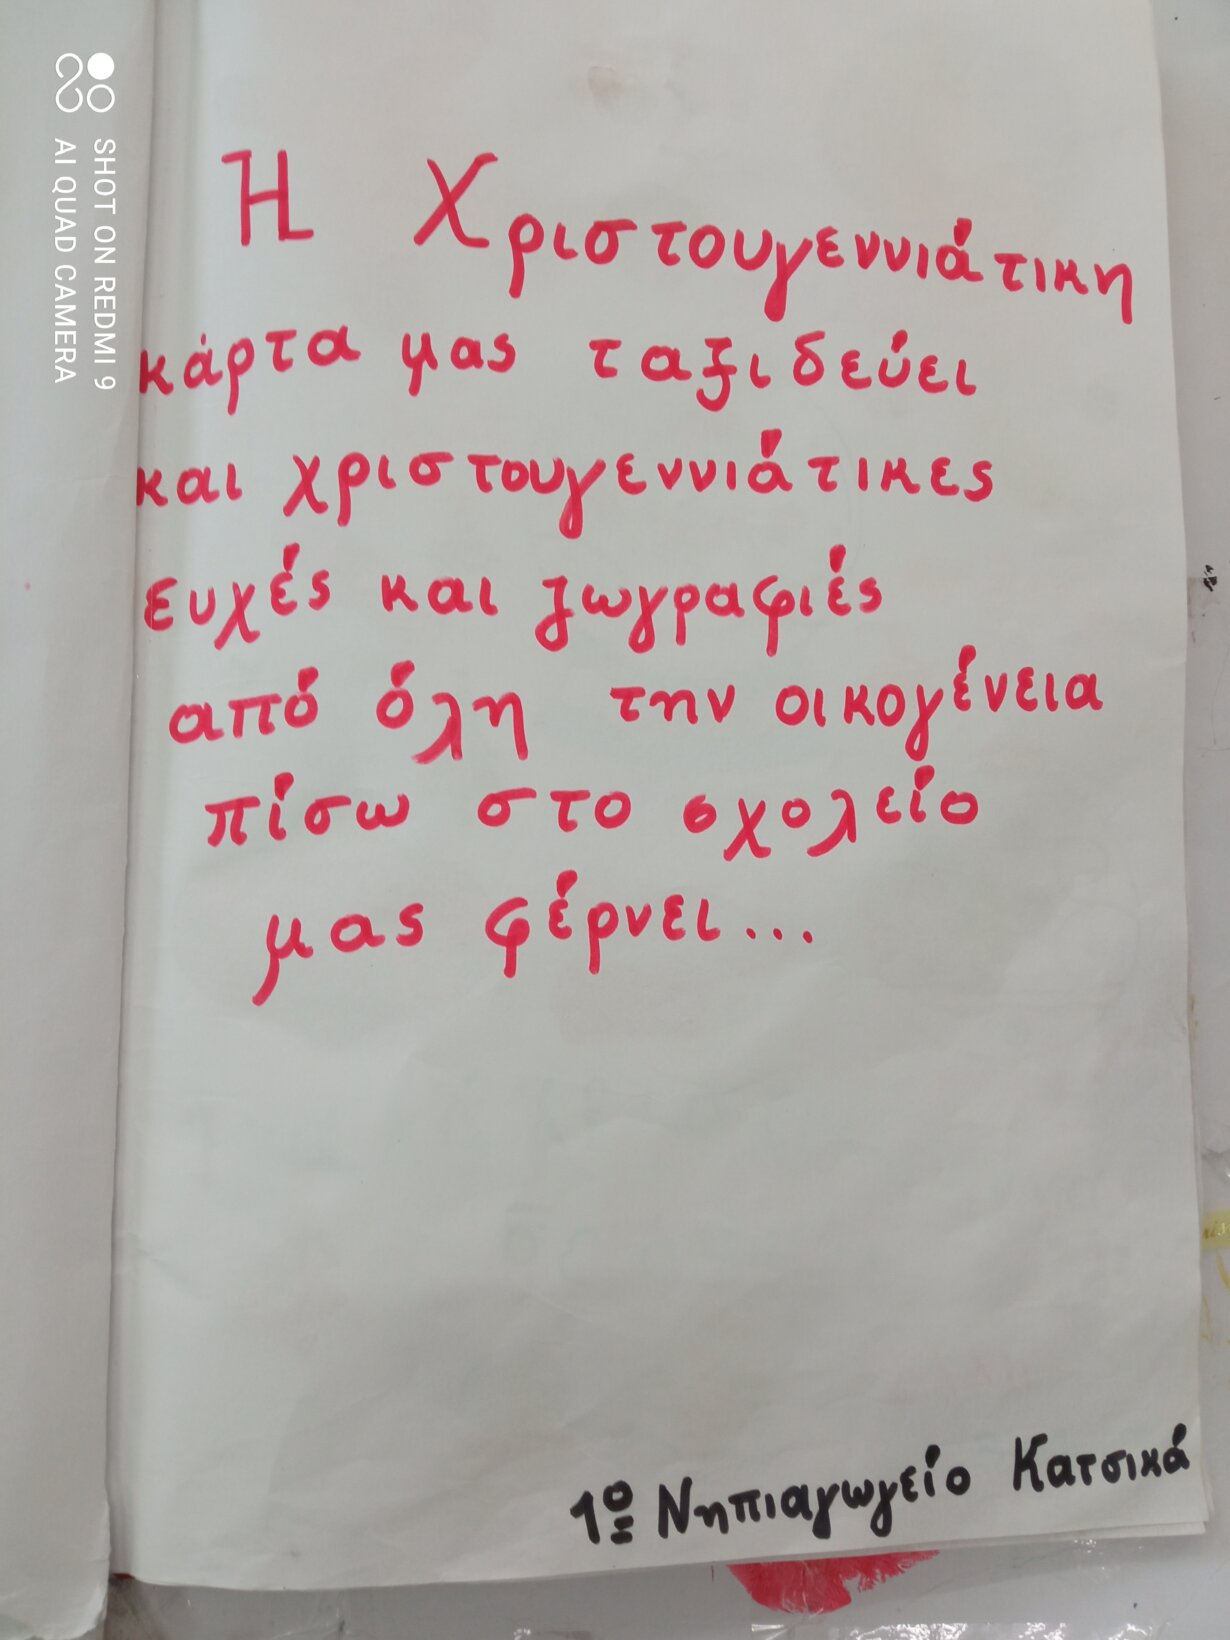 Η Χριστουγεννιάτικη
κάρτα μας ταξιδεύει
και χριστουγεννιάτικες
ευχές και ζωγραφιές
από όλη την οικογένεια
πίσω στο σχολείο
μας φέρνει...
1º Νηπιαγωγείο Κατσικά
SHOT ON REDMI 9
AI QUAD CAMERA